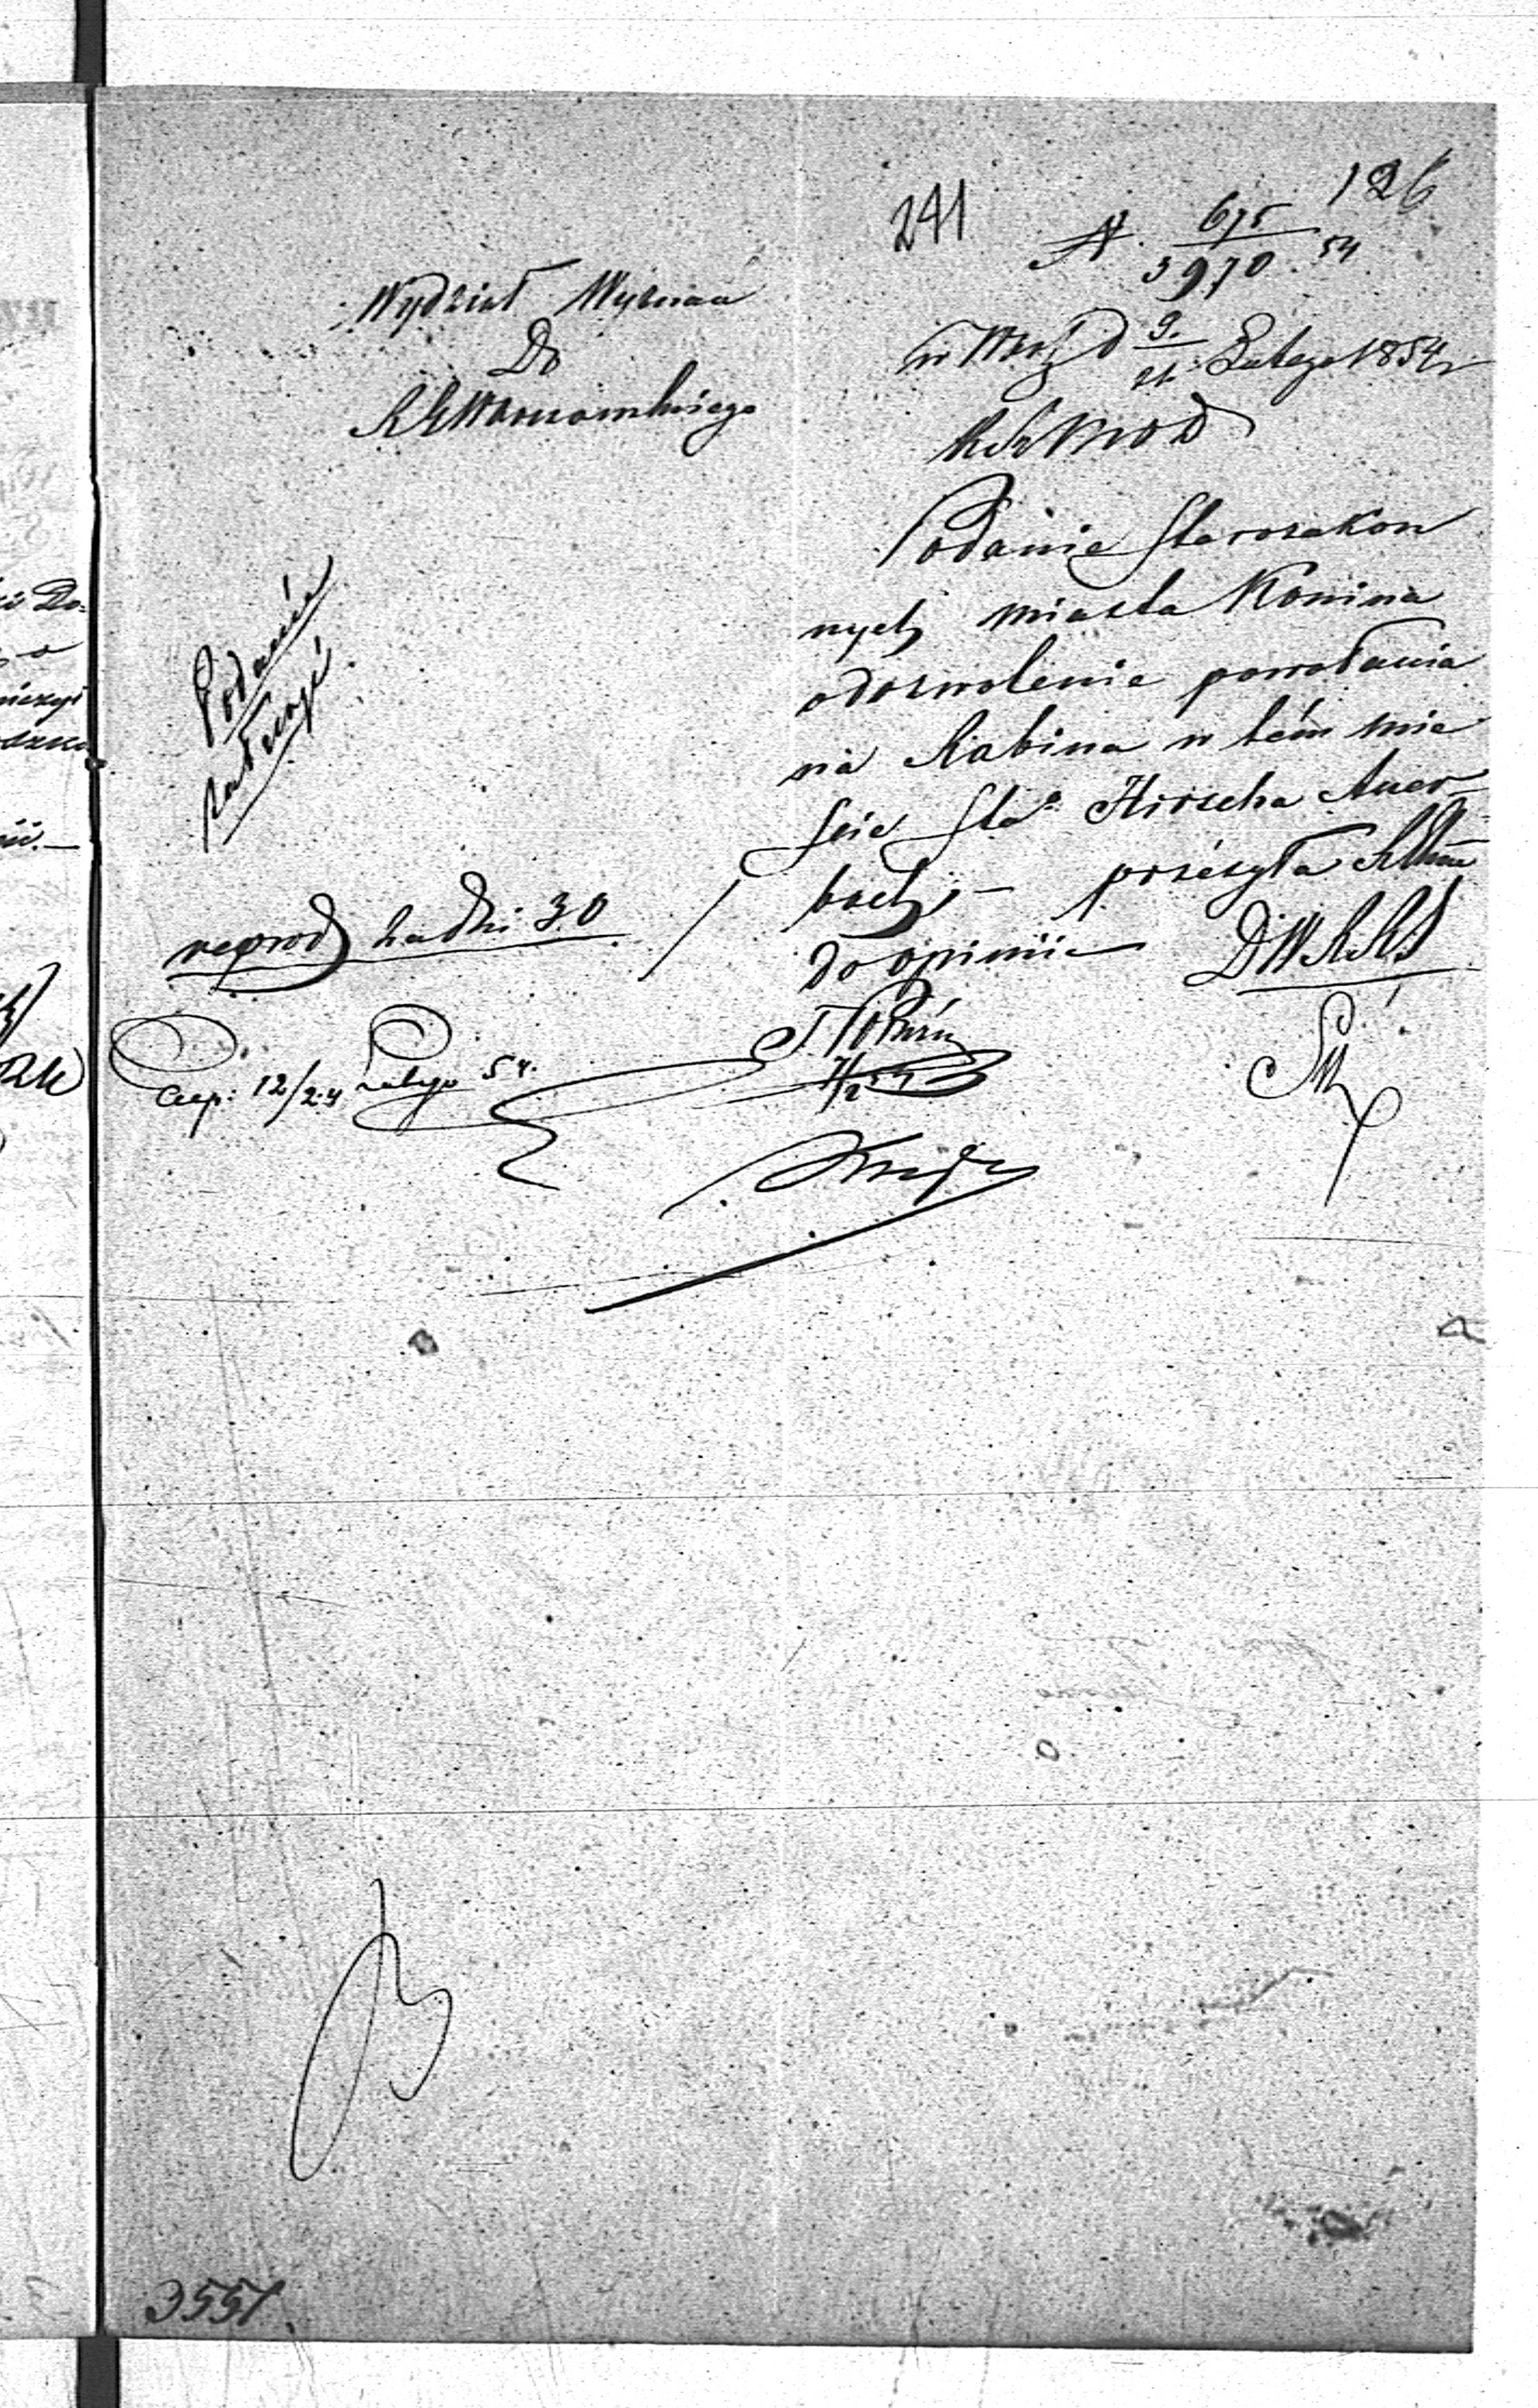 126
241
N. 675
3970. 54
Wydział Wyznań
Do
RGWarszawskiego
w Warsz d 9/21 Lutego 1854 r
KRSW i OD
Podanie Starozakon
nych miasta Konina
o dozwolenie powołania
na Rabina w tém mie
ście Sta: Hirscha Auer-
bach, — przesyła
do opinii
Podanie
załączyć
reprod za dni 30
Exp: 12/24 Lutego 54.
3551